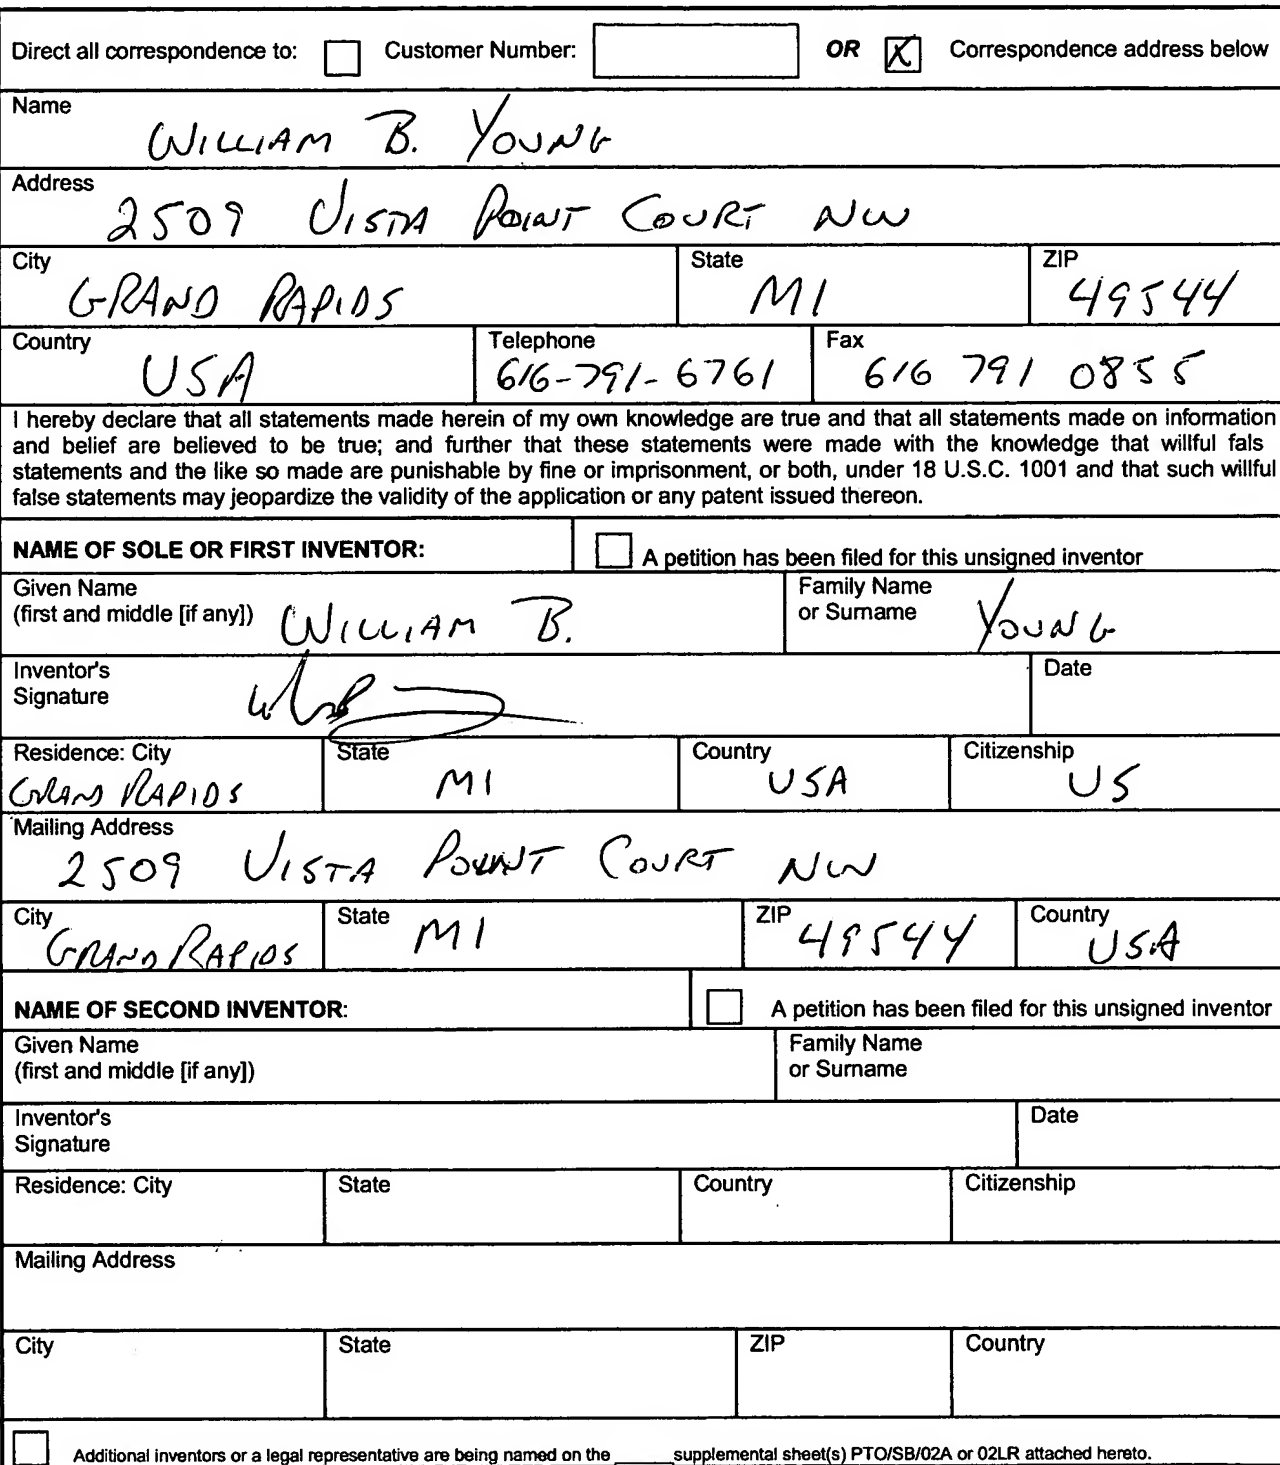 Direct all correspondence to: Customer Number: OR X Correspondence address below
Name
WILLIAM B. YOUNG
Address
2509 VISTA POINT COURT NW
City State ZIP
GRAND RAPIDS MI 49544
Country Telephone Fax
USA 616-791-6761 616 791 0855
I hereby declare that all statements made herein of my own knowledge are true and that all statements made on information
and belief are believed to be true; and further that these statements were made with the knowledge that willful fals
statements and the like so made are punishable by fine or imprisonment, or both, under 18 U.S.C. 1001 and that such willful
false statements may jeopardize the validity of the application or any patent issued thereon.
NAME OF SOLE OR FIRST INVENTOR: A petition has been filed for this unsigned inventor
Given Name Family Name
(first and middle [if any]) WILLIAM B. or Surname YOUNG
Inventor's Date
Signature
Residence: City State Country Citizenship
GRAND RAPIDS MI USA US
Mailing Address
2509 VISTA POINT COURT NW
City State ZIP Country
GRAND RAPIDS MI 49544 USA
NAME OF SECOND INVENTOR: A petition has been filed for this unsigned inventor
Given Name Family Name
(first and middle [if any]) or Surname
Inventor's Date
Signature
Residence: City State Country Citizenship
Mailing Address
City State ZIP Country
Additional inventors or a legal representative are being named on the _____ supplemental sheet(s) PTO/SB/02A or 02LR attached hereto.